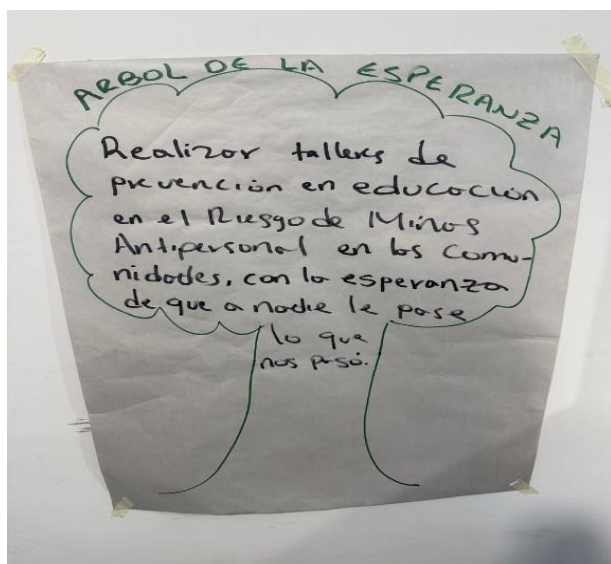 ARBOL DE LA ESPERANZA
Realizar talleres de
prevención en educación
en el Riesgo de Minas
Antipersonal en las Comu-
nidades, con la esperanza
de que a nadie le pase
lo que
nos pasó.